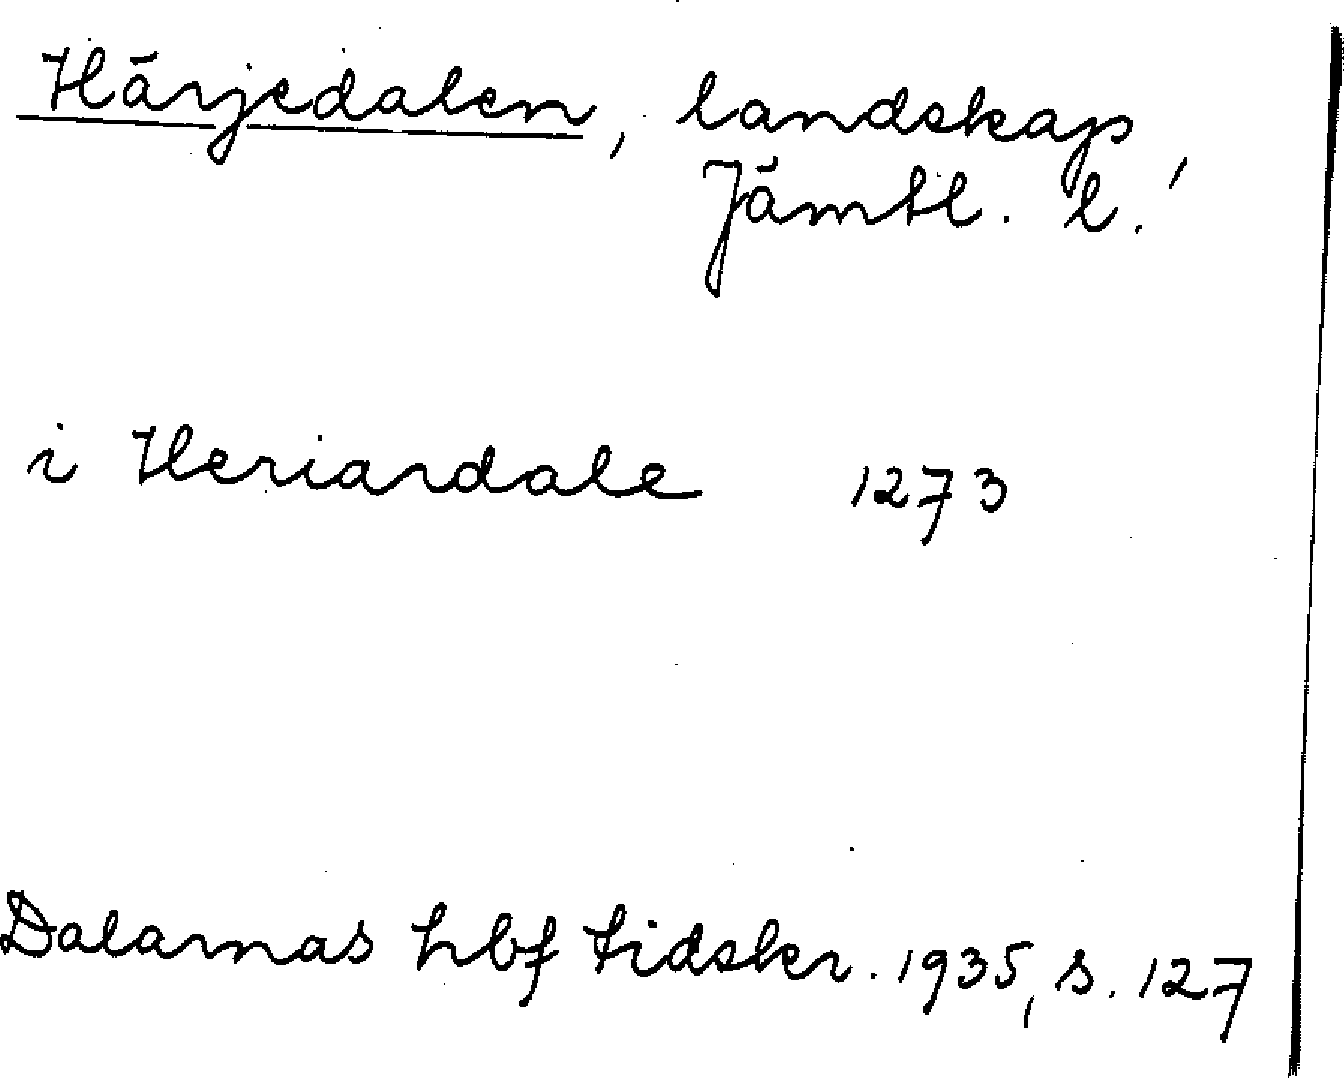 Härjedalen, landskap,
Jämtl. l.
i Heriardale 1273
Dalarnas hbf tidskr. 1935, s. 127